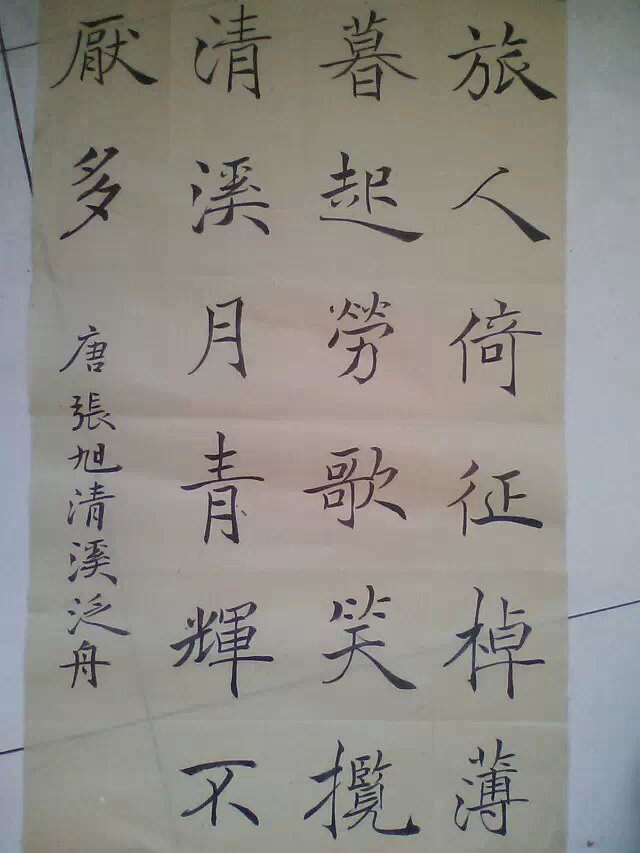 旅人倚征棹薄
暮起勞歌笑攬
清溪月青輝不
厭多
唐張旭清溪泛舟